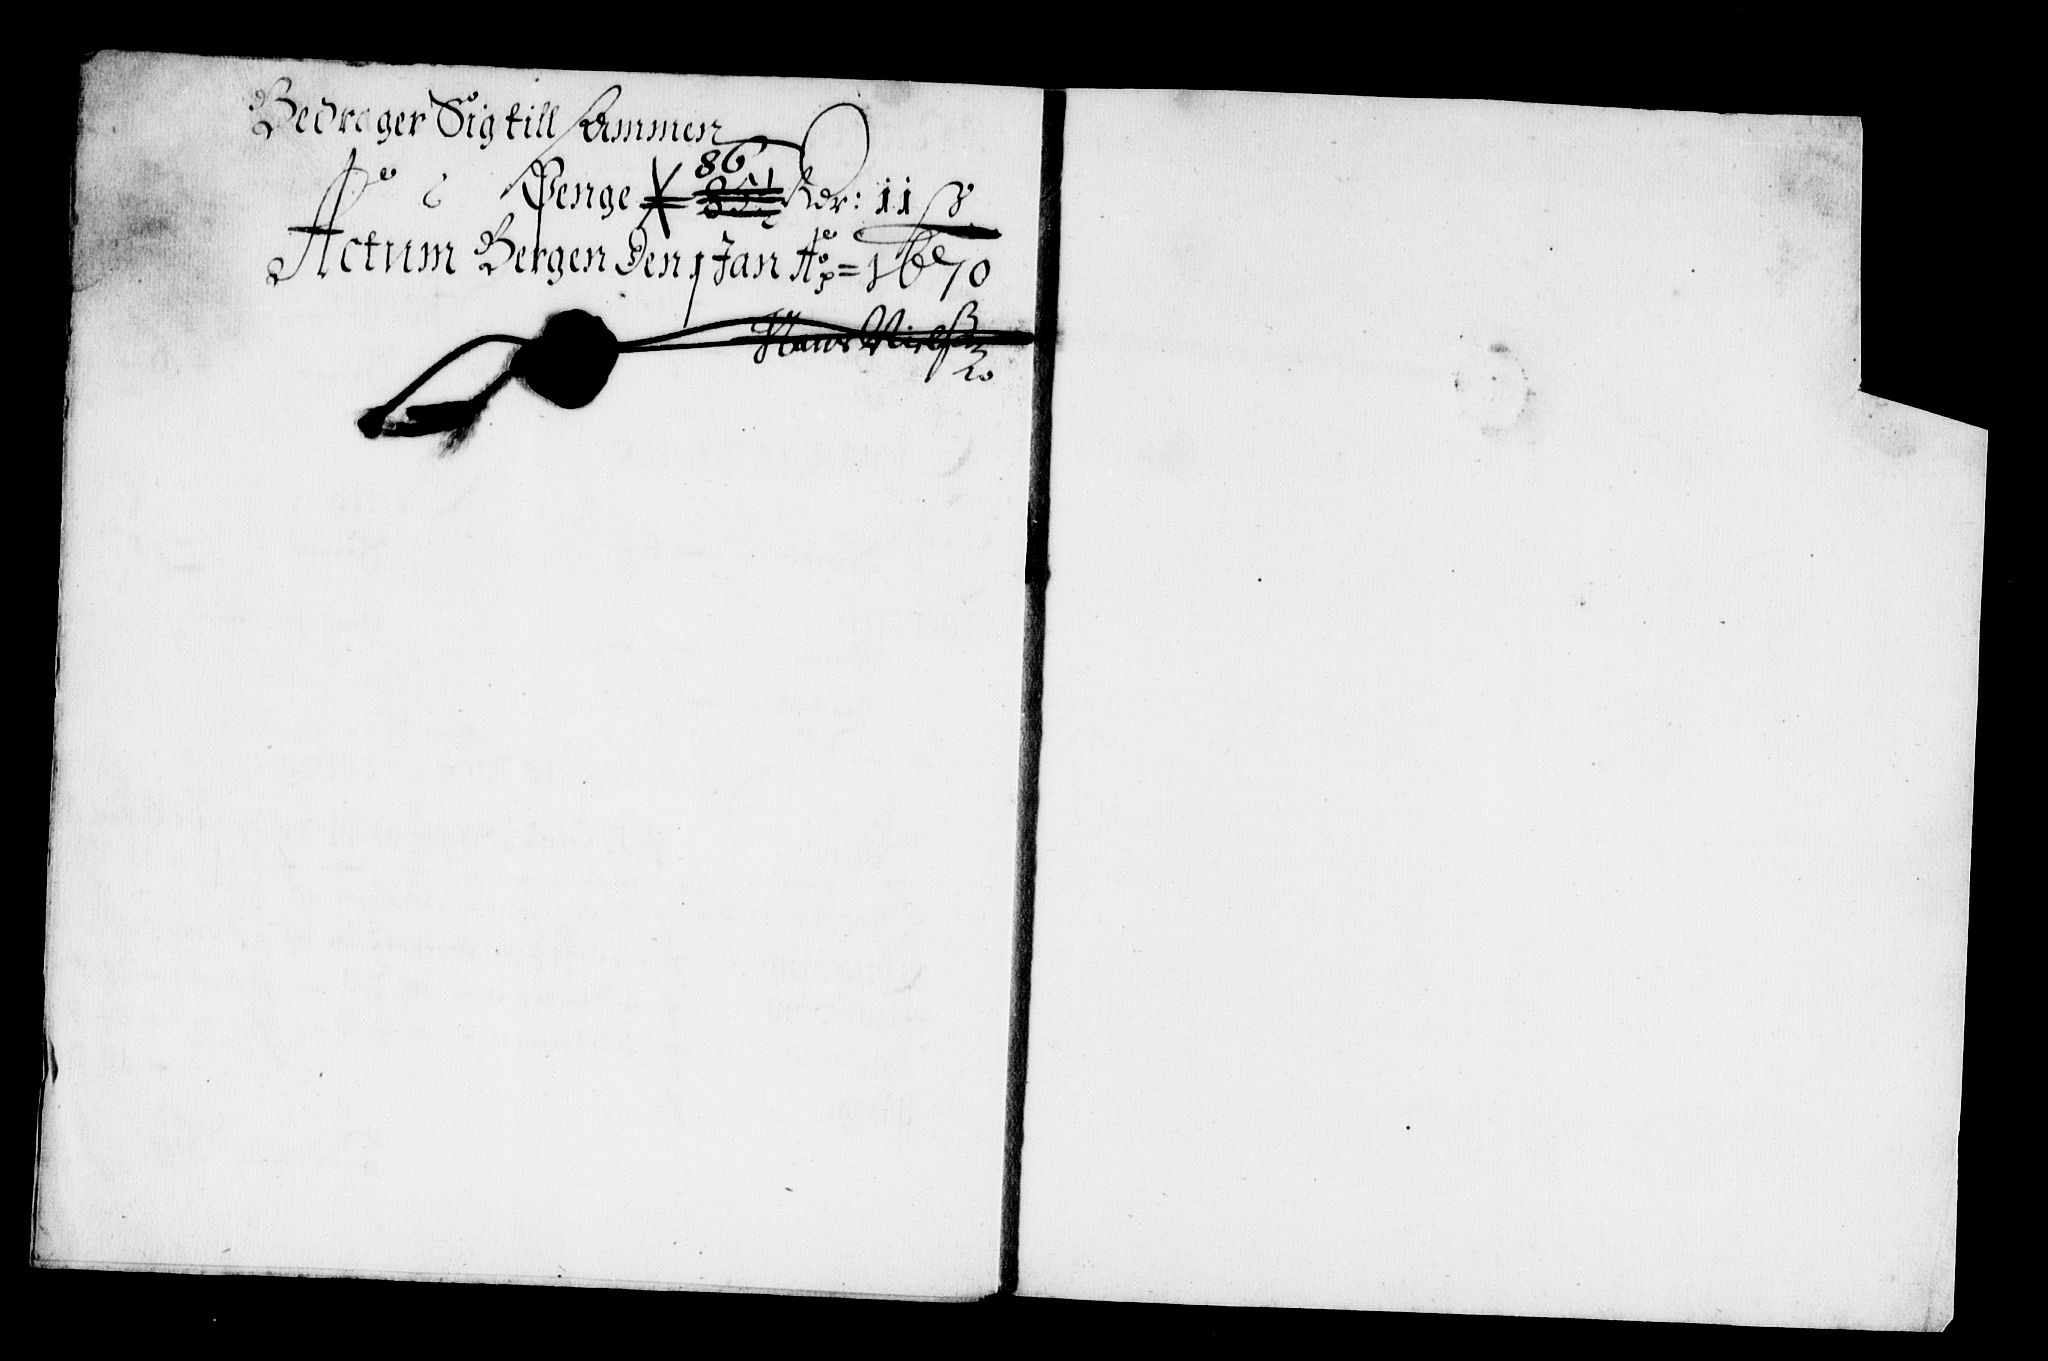 Bedrager Sig till sammen
Penge 86 Rdr: 11 ß
Actum Bergen Den 1 Jan Aº = 1670
Hans Nielß